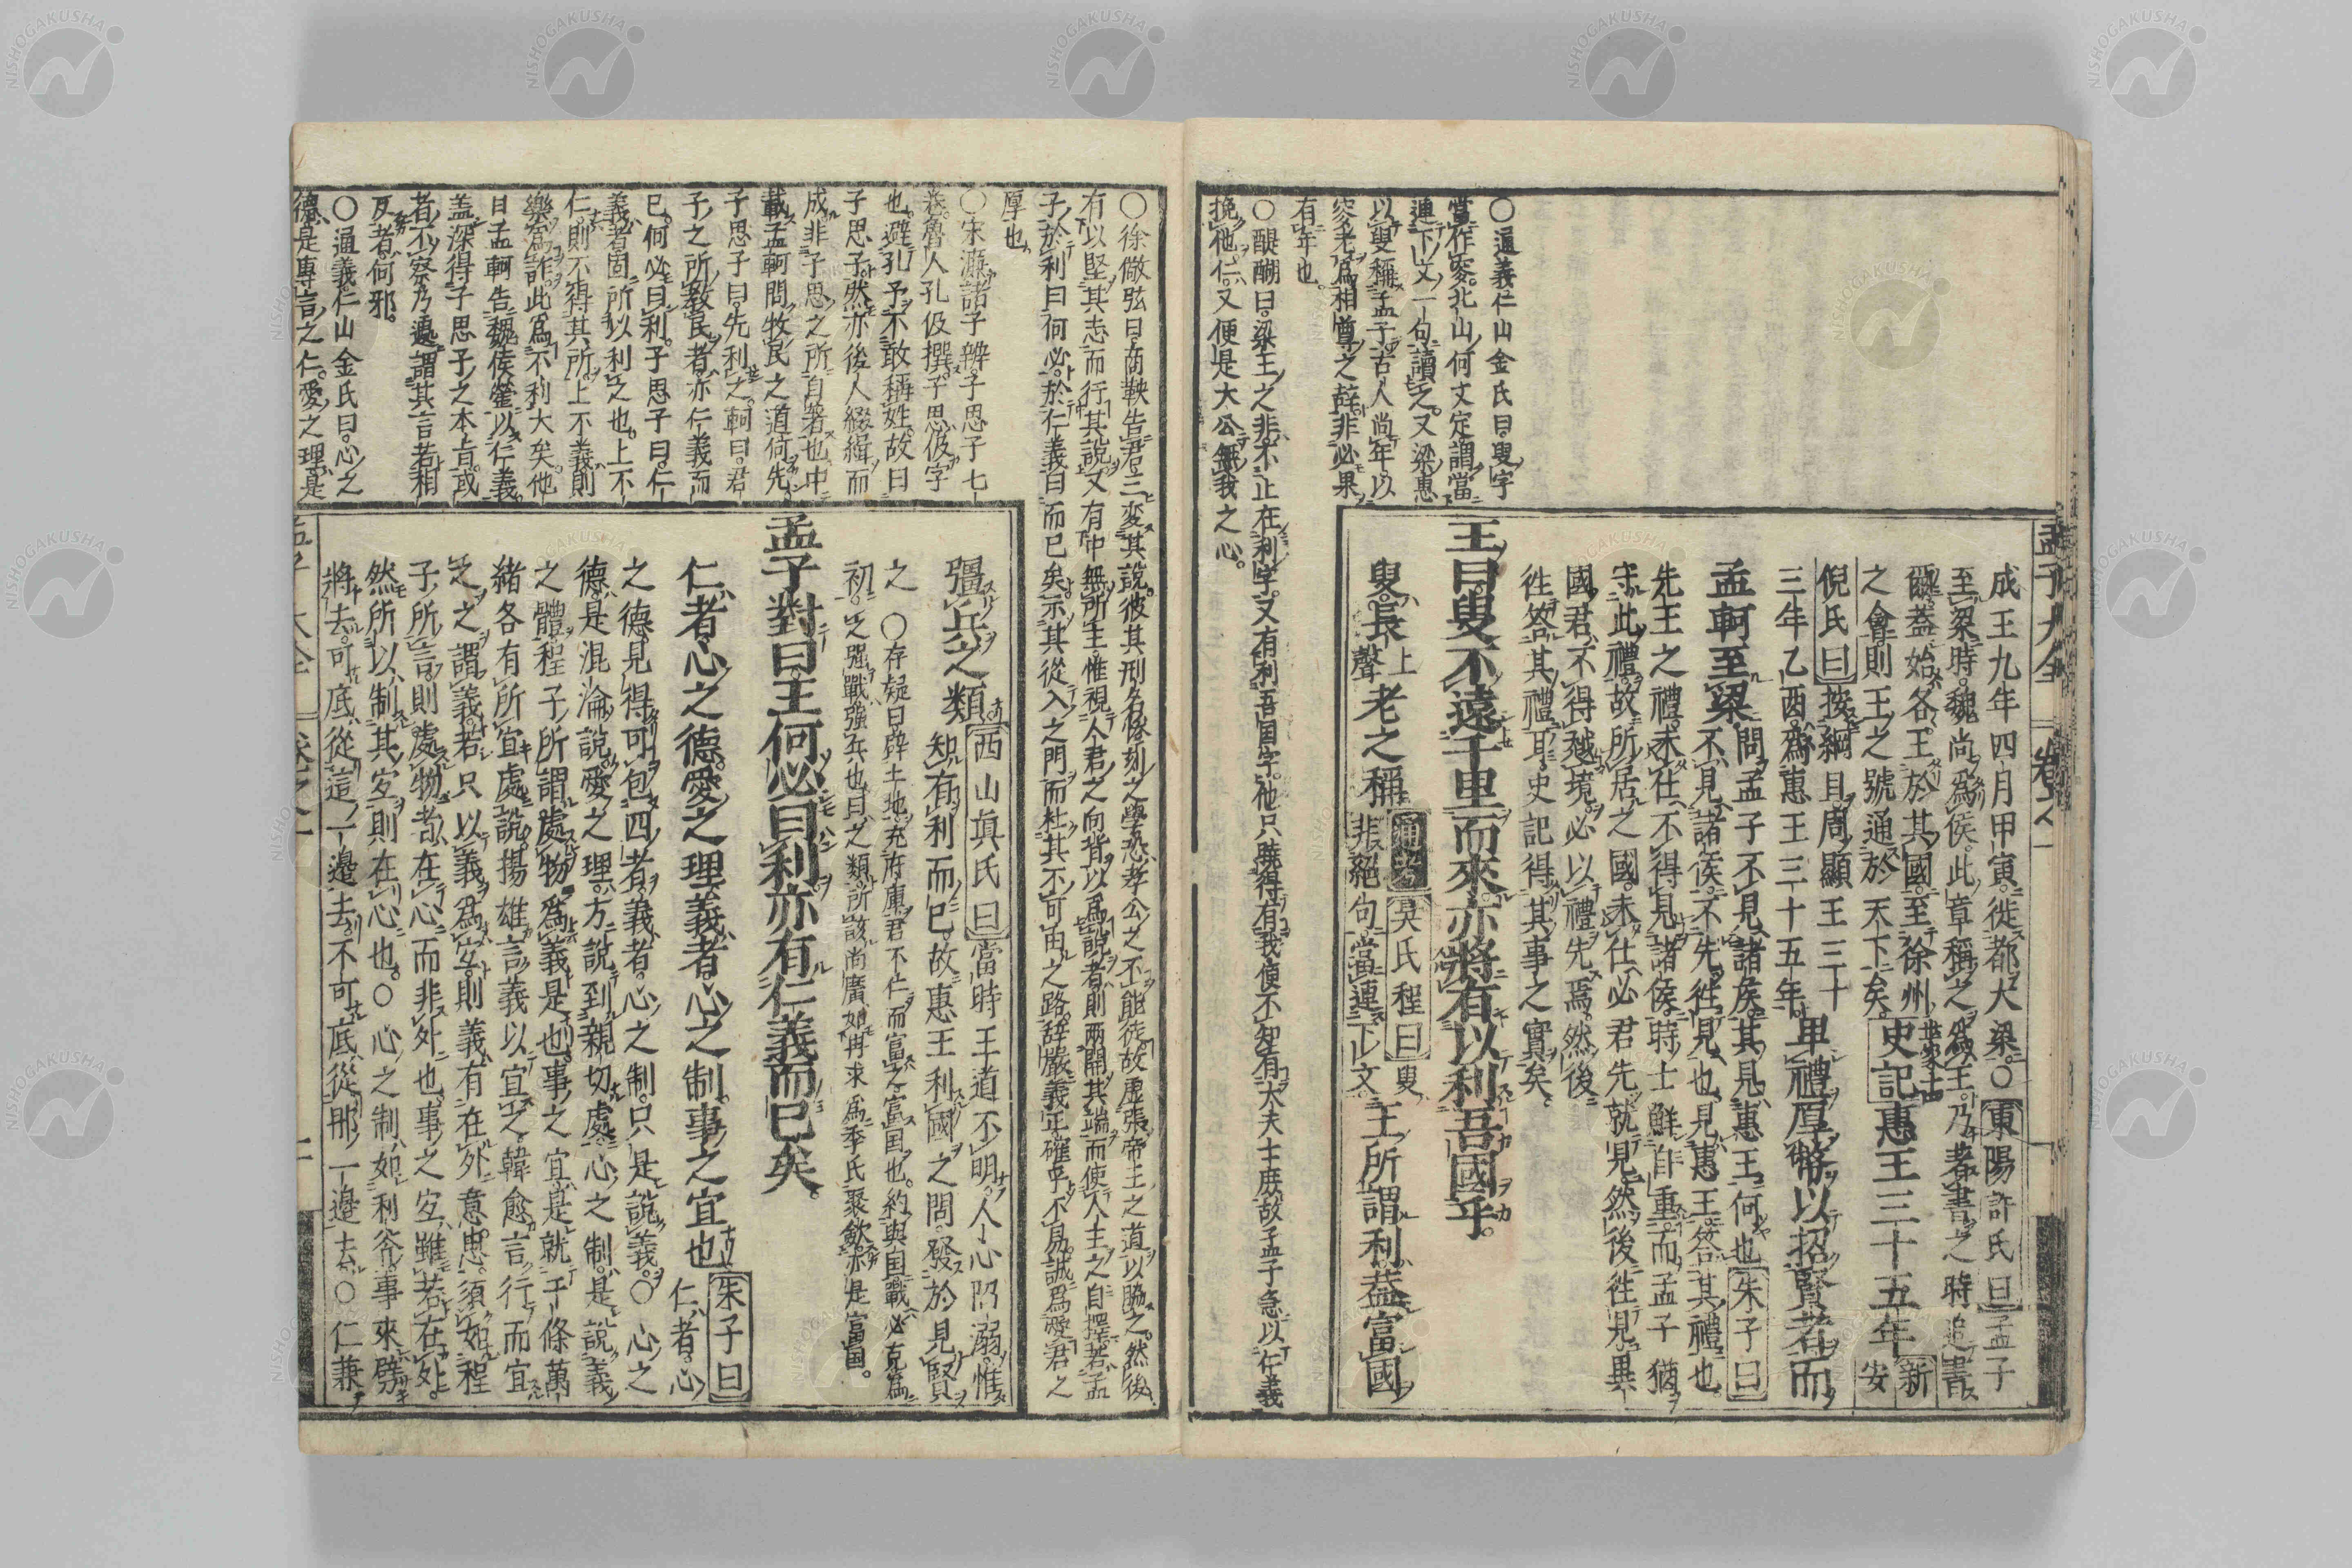 孟子大全
卷之一
成王九年四月甲寅徙都大梁○東陽許氏曰孟子
至梁時魏尚爲侯此章稱之爲王乃著書之時追書
爾蓋始各王於其國至徐州
之會則王之號通於天下矣
史記惠王三十五年
新安
倪氏曰按綱目周顯王三十
三年乙酉爲惠王三十五年
卑禮厚幣以招賢者而
孟軻至梁
問孟子不見諸侯其見惠王何也朱子曰
不見諸侯不先往見也見惠王答其禮也
先王之禮未仕不得見諸侯時士鮮自重而孟子猶
守此禮故所居之國未仕必君先就見然後往見異
國君不得越境必以禮先焉然後
往答其禮耳史記得其事之實矣
王曰叟不遠千里而來亦將有以利吾國乎
叟長上聲老之稱
通考吳氏程曰叟
非絕句當連下文
王所謂利蓋富國
○通義仁山金氏曰叟字
當作叜北山何文定謂當
連下文一句讀之又梁惠
以叟稱孟子古人尚年以
叜老爲相尊之辭非必果
有年也
○醍醐曰梁王之非不止在利字又有利吾国字他只曉得有我便不知有大夫士庶故孟子急以仁義
挽他仁又便是大公無我之心
○徐儆弦曰商鞅告君三変其說彼其刑名慘刻之學恐孝公之不能從故虛張帝王之道以胁之然後
有以堅其志而行其說又有中無所主惟視人君之向背以爲說者則兩開其端而使人主之自擇若孟
子於利曰何必於仁義曰而已矣示其從入之門而杜其不可由之路辞嚴義正確乎不易誠爲愛君之
厚也
○宋濂諸子辨子思子七
卷魯人孔伋撰子思伋字
也避孔予不敢稱姓故曰
子思子然亦後人綴緝而
成非子思之所自著也中
載孟軻問牧民之道何先
子思子曰先利之軻曰君
子之所教民者亦仁義而
已何必曰利子思子曰仁
義者固所以利之也上不
仁則不得其所上不義則
樂爲詐此爲不利大矣他
日孟軻告魏侯罃以仁義
蓋深得子思子之本旨或
者不察乃遽謂其言若相
反者何邪
○通義仁山金氏曰心之
德是專言之仁愛之理是
彊兵之類
西山眞氏曰當時王道不明人心陷溺惟
知有利而已故惠王利國之問發於見賢
之
初
○存疑曰辟土地充府庫君不仁而富之富国也約與国戰必克爲
之强戰強兵也曰之類所該尚廣如冉求爲季氏聚斂亦是富国
孟子對曰王何必曰利亦有仁義而已矣
仁者心之德愛之理義者心之制事之宜也
朱子曰
仁者心
之德見得可包四者義者心之制只是說義○心之
德是混淪說愛之理方說到親切處心之制是說義
之體程子所謂處物爲義是也事之宜是就千條萬
緒各有所宜處說揚雄言義以宜之韓愈言行而宜
之之謂義若只以義爲宜則義有在外意思須如程
子所言則處物者在心而非外也事之宜雖若在外
然所以制其宜則在心也○心之制如利斧事來劈
將去可底從這一邊去不可底從那一邊去○仁兼